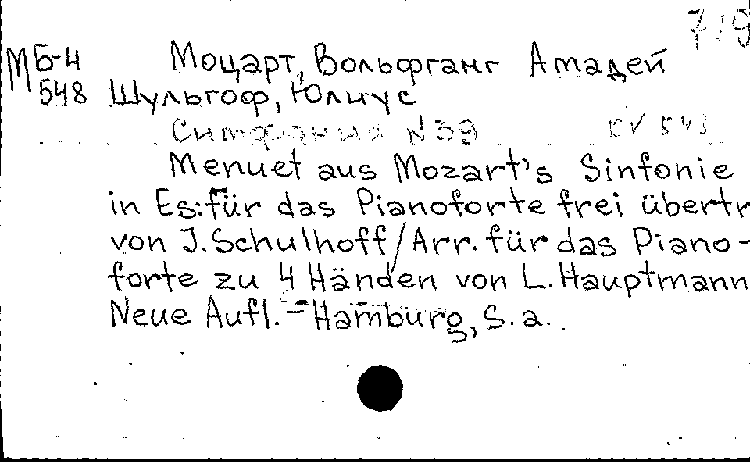 719
МБ-4 Моцарт, Вольфганг Амадей
548 Шульгоф, Юлиус
Симфония N39 KV 543
Menuet aus Mozart's Sinfonie
in Es: für das Pianoforte frei übertr
von J. Schulhoff / Arr. für das Piano-
forte zu 4 Händen von L. Hauptmann
Neue Aufl. - Hamburg, s. a.